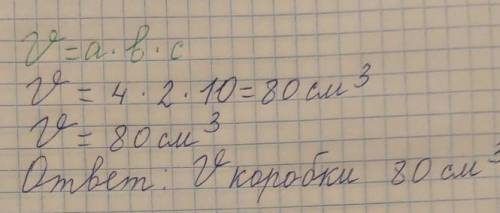 V = a · в · с
V = 4 · 2 · 10 = 80 см³
V = 80 см³
Ответ: V коробки 80 см³